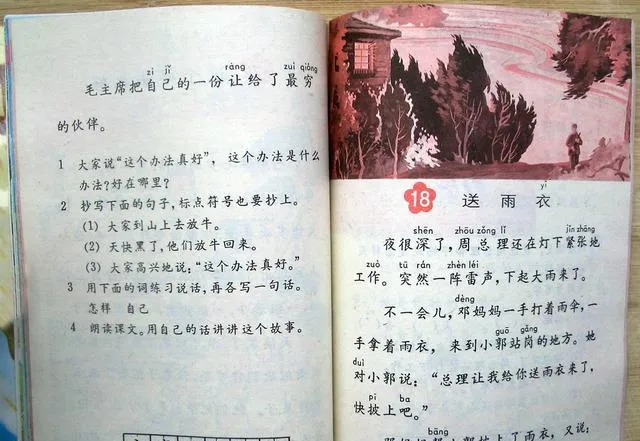 zì jǐ ràng zuì qióng
毛主席把自己的一份让给了最穷
的伙伴。
1 大家说“这个办法真好”，这个办法是什么
办法?好在哪里?
2 抄写下面的句子，标点符号也要抄上。
(1) 大家到山上去放牛。
(2) 天快黑了，他们放牛回来。
(3) 大家高兴地说：“这个办法真好。”
3 用下面的词练习说话，再各写一句话。
怎样 自己
4 朗读课文。用自己的话讲讲这个故事。
yī
18 送雨衣
shēn zhōu zǒng lǐ jǐn zhāng
夜很深了，周总理还在灯下紧张地
zuò tū rán zhèn léi
工作。突然一阵雷声，下起大雨来了。
dèng
不一会儿，邓妈妈一手打着雨伞，一
guō gǎng
手拿着雨衣，来到小郭站岗的地方。她
duì
对小郭说：“总理让我给你送雨衣来了，
pī ba
快披上吧。”
bāng
邓妈妈帮小郭披上了雨衣，又说：